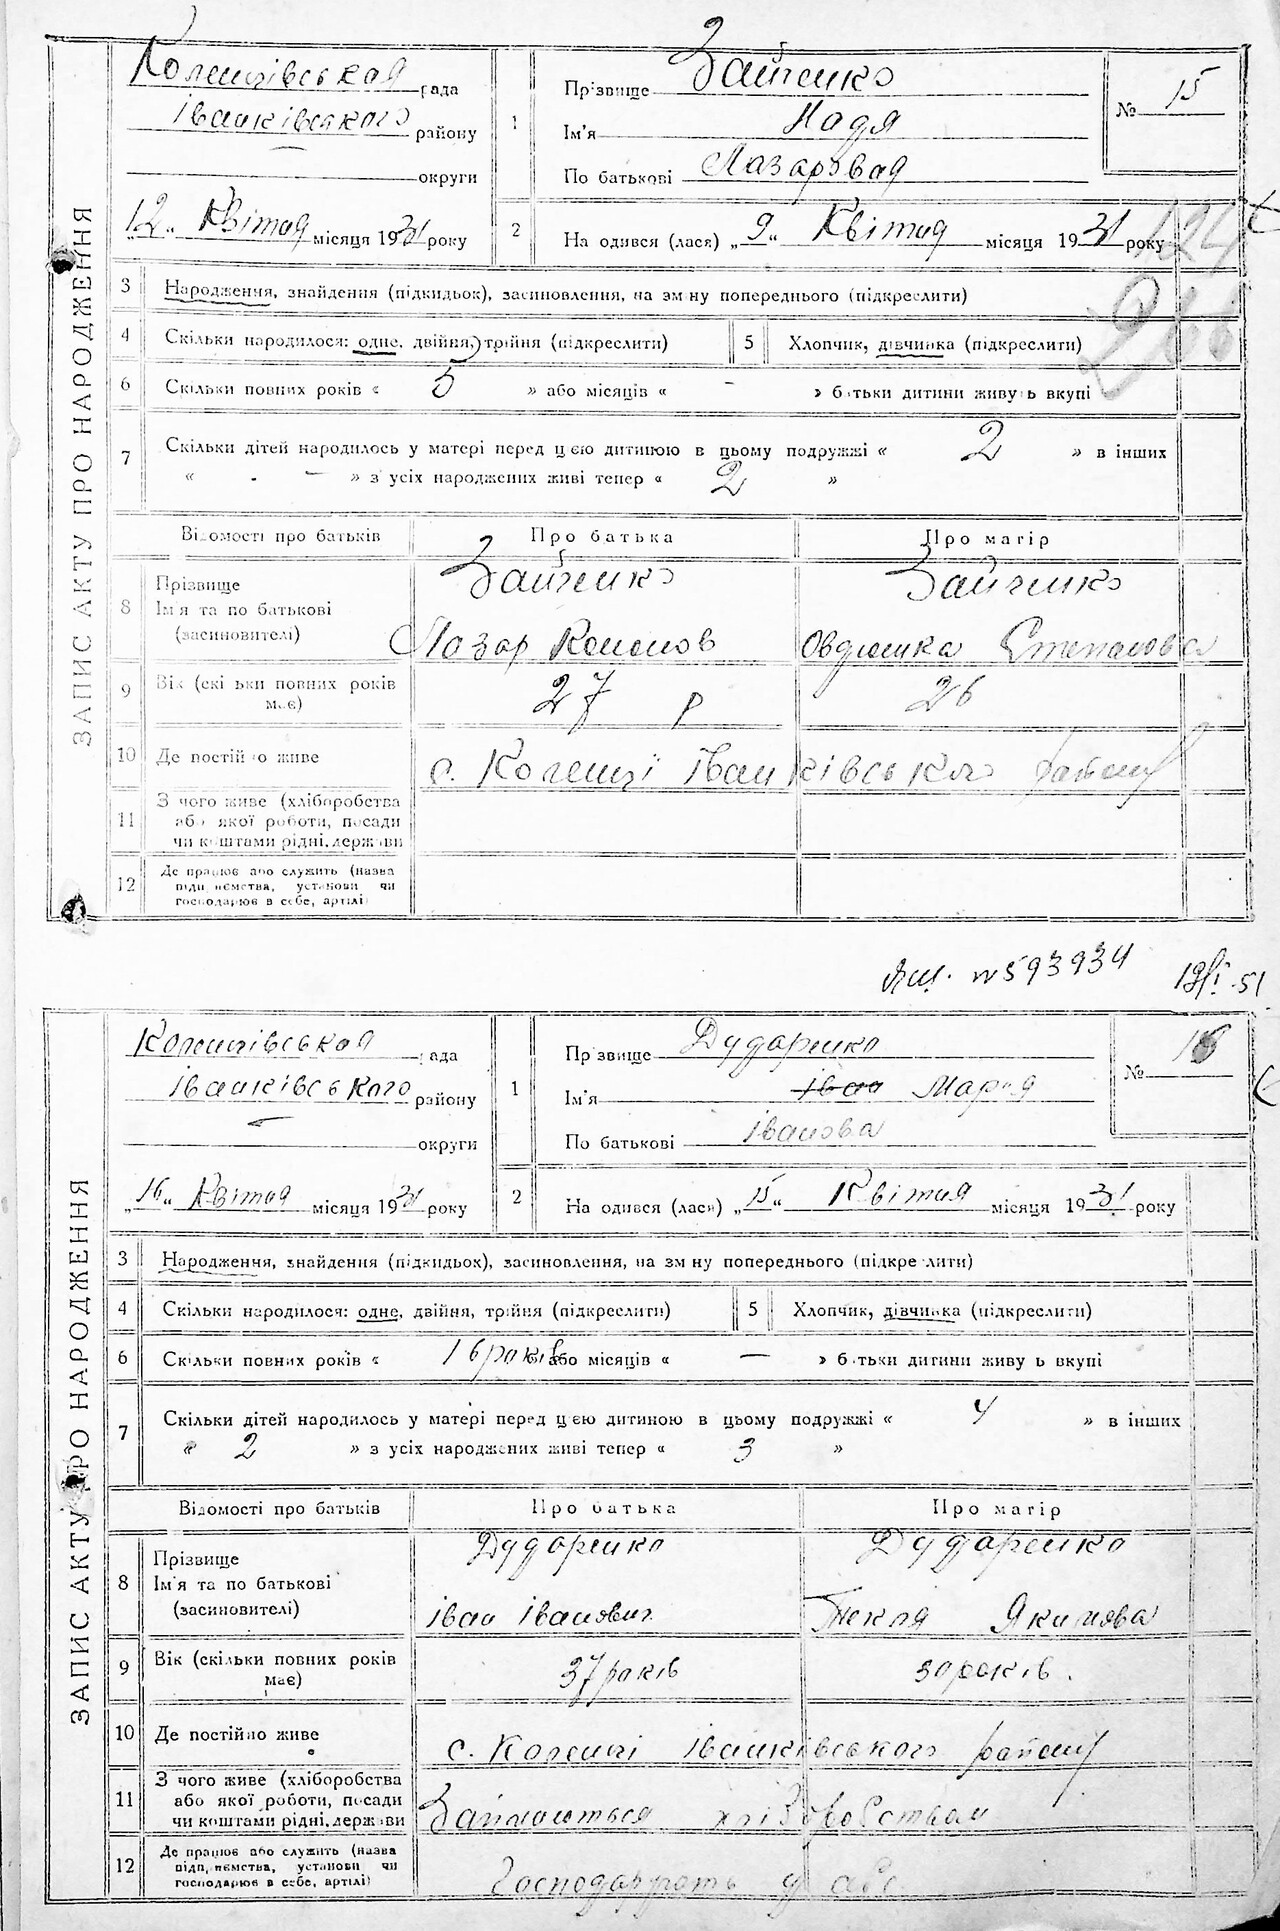 ЗАПИС АКТУ ПРО НАРОДЖЕННЯ
Коленцівская рада
Іванківського району
округи
„12“ Квітня місяця 1931 року
1
Прізвище Зайченко
Ім'я Надя
По батькові Лазаровая
№ 15
2
На одився (лася) „9“ Квітня місяця 1931 року
124
266
3 Народження, знайдення (підкидьок), засиновлення, на зм ну попереднього (підкреслити)
4 Скільки народилося: одне, двійня, трійня (підкреслити)
5 Хлопчик, дівчинка (підкреслити)
6 Скільки повних років « 5 » або місяців « – » батьки дитини живуть вкупі
7 Скільки дітей народилось у матері перед цією дитиною в цьому подружжі « 2 » в інших
« - — » з усіх народжених живі тепер « 2 »
Відомості про батьків Про батька Про матір
8 Прізвище Зайченко Зайченко
Ім'я та по батькові
(засиновителі) Лазар Кононов Овдюшка Степанова
9 Вік (скільки повних років має) 27 р 26
10 Де постійно живе с. Коленці Іванківського району
11 З чого живе (хліборобства
або якої роботи, посади
чи коштами рідні, держави
12 Де працює або служить (назва
підприємства, установи чи
господарює в себе, артілі)
№ 593934 51
ЗАПИС АКТУ ПРО НАРОДЖЕННЯ
Коленцівская рада
Іванківського району
округи
„16“ Квітня місяця 1931 року
1
Прізвище Дударенко
Ім'я Іван Мария
По батькові Іванова
№ 16
2
На одився (лася) „15“ Квітня місяця 1931 року
3 Народження, знайдення (підкидьок), засиновлення, на зм ну попереднього (підкреслити)
4 Скільки народилося: одне, двійня, трійня (підкреслити)
5 Хлопчик, дівчинка (підкреслити)
6 Скільки повних років « 16 років або місяців « — » батьки дитини живуть вкупі
7 Скільки дітей народилось у матері перед цією дитиною в цьому подружжі « 4 » в інших
« 2 » з усіх народжених живі тепер « 3 »
Відомості про батьків Про батька Про матір
8 Прізвище Дударенко Дударенко
Ім'я та по батькові
(засиновителі) Іван Іванович Текля Якимова
9 Вік (скільки повних років має) 37 років 30 років.
10 Де постійно живе с. Коленці Іванківського району
11 З чого живе (хліборобства
або якої роботи, посади
чи коштами рідні, держави Займаються хліборобством
12 Де працює або служить (назва
підприємства, установи чи
господарює в себе, артілі) Господарують у себе